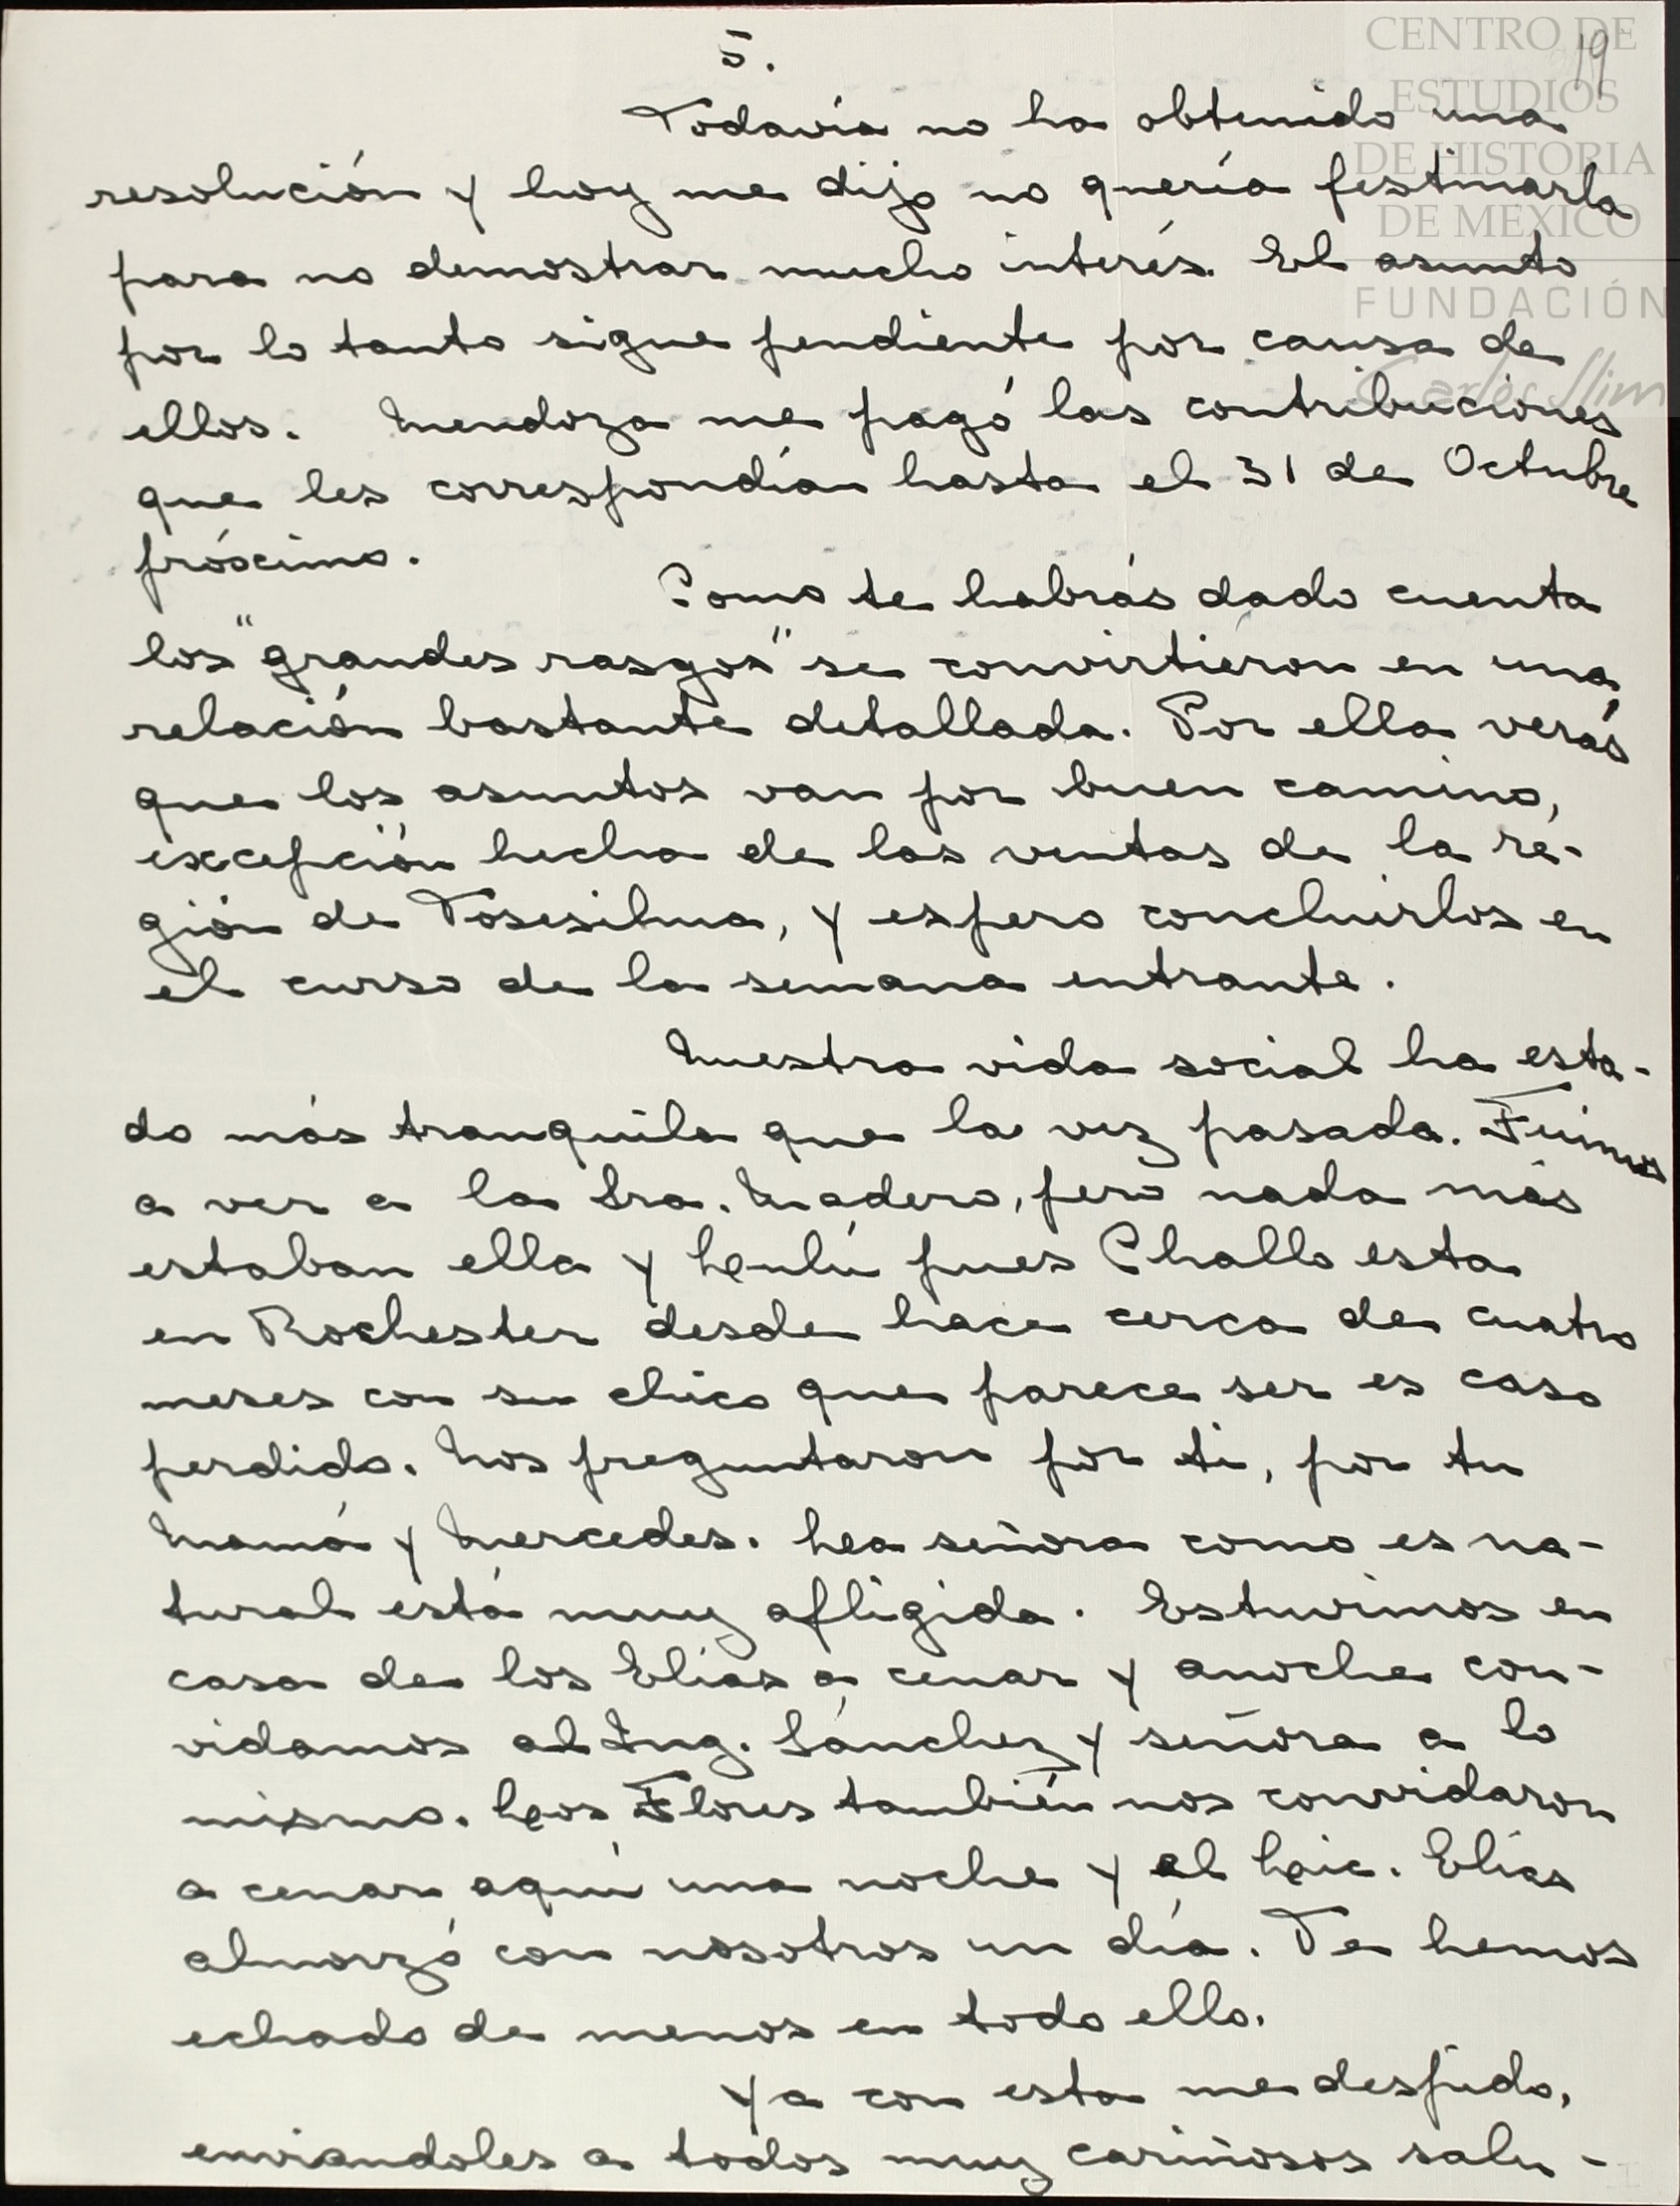 CENTRO DE
ESTUDIOS
DE HISTORIA
DE MEXICO
FUNDACIÓN
Carlos Slim
19
5.
Todavía no ha obtenido una
resolución y hoy me dijo no quería festinarla
para no demostrar mucho interés. El asunto
por lo tanto sigue pendiente por causa de
ellos. Mendoza me pagó las contribuciones
que les correspondían hasta el 31 de Octubre
próximo.
Como te habrás dado cuenta
los "grandes rasgos" se convirtieron en una
relación bastante detallada. Por ella verás
que los asuntos van por buen camino,
excepción hecha de las ventas de la re-
gión de Tosesihua, y espero concluirlos en
el curso de la semana entrante.
Nuestra vida social ha esta-
do más tranquila que la vez pasada. Fuimos
a ver a la Sra. Madero, pero nada más
estaban ella y Lulú pues Chalo esta
en Rochester desde hace cerca de cuatro
meses con su chico que parece ser es caso
perdido. Nos preguntaron por ti, por tu
Mamá y Mercedes. La señora como es na-
tural está muy afligida. Estuvimos en
casa de los Elías a cenar y anoche con-
vidamos al Ing. Sánchez y señora a lo
mismo. Los Flores también nos convidaron
a cenar aquí una noche y el Lic. Elías
almorzó con nosotros un día. Te hemos
echado de menos en todo ello.
Ya con esta me despido,
enviandoles a todos muy cariñosos salu-